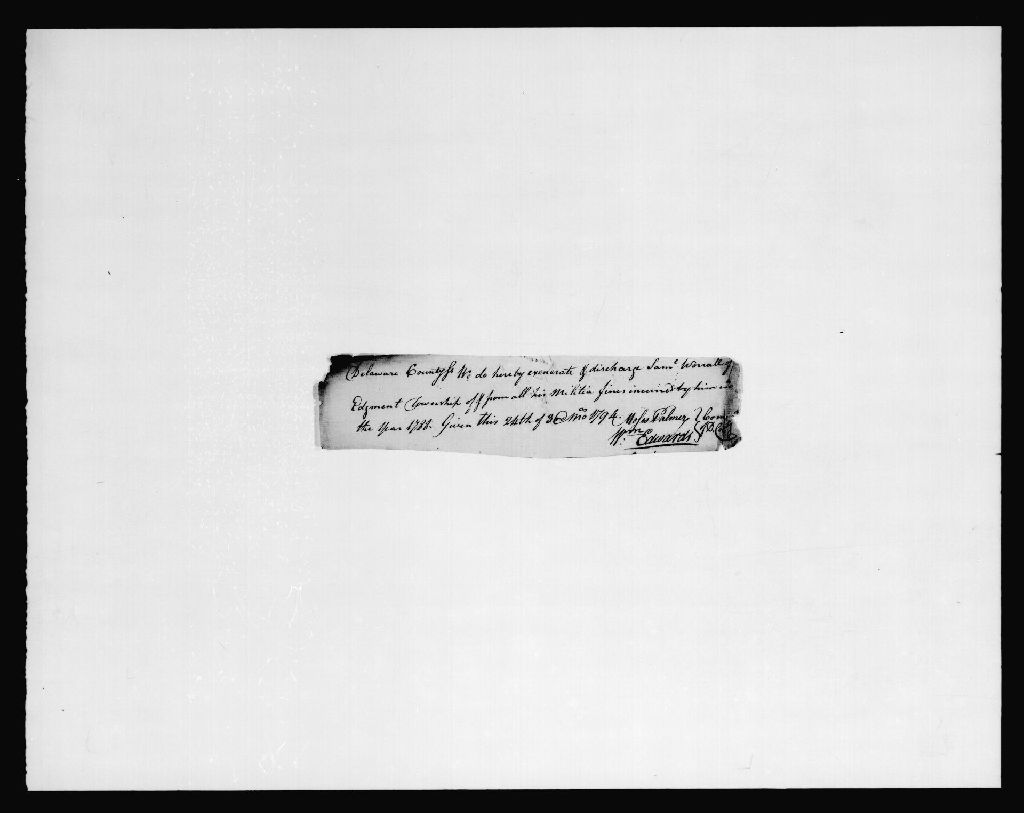 Delaware County ss We do hereby exonerate & discharge Sam.l Worrall of
Edgment Township off from all his Militia fines incurred by him
the year 1788. Given this 24th of 3d Mo 1794. Moses Palmer
Wm. Edwards